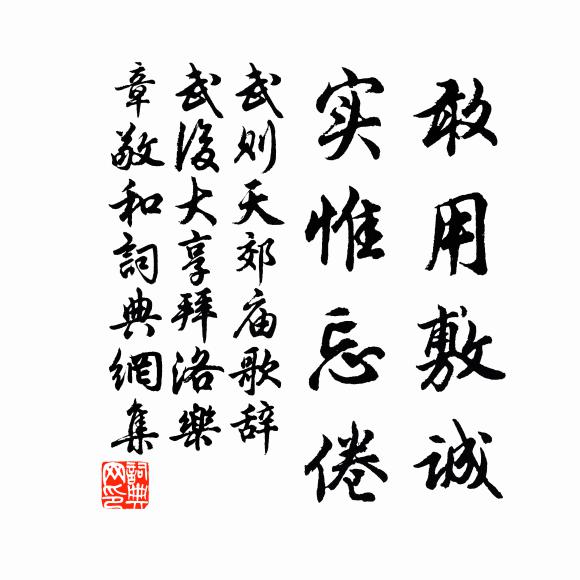 敢用敷诚
实惟忘倦
武则天郊庙歌辞
武後大享拜洛樂
章敬和詞典網集
詞典网印